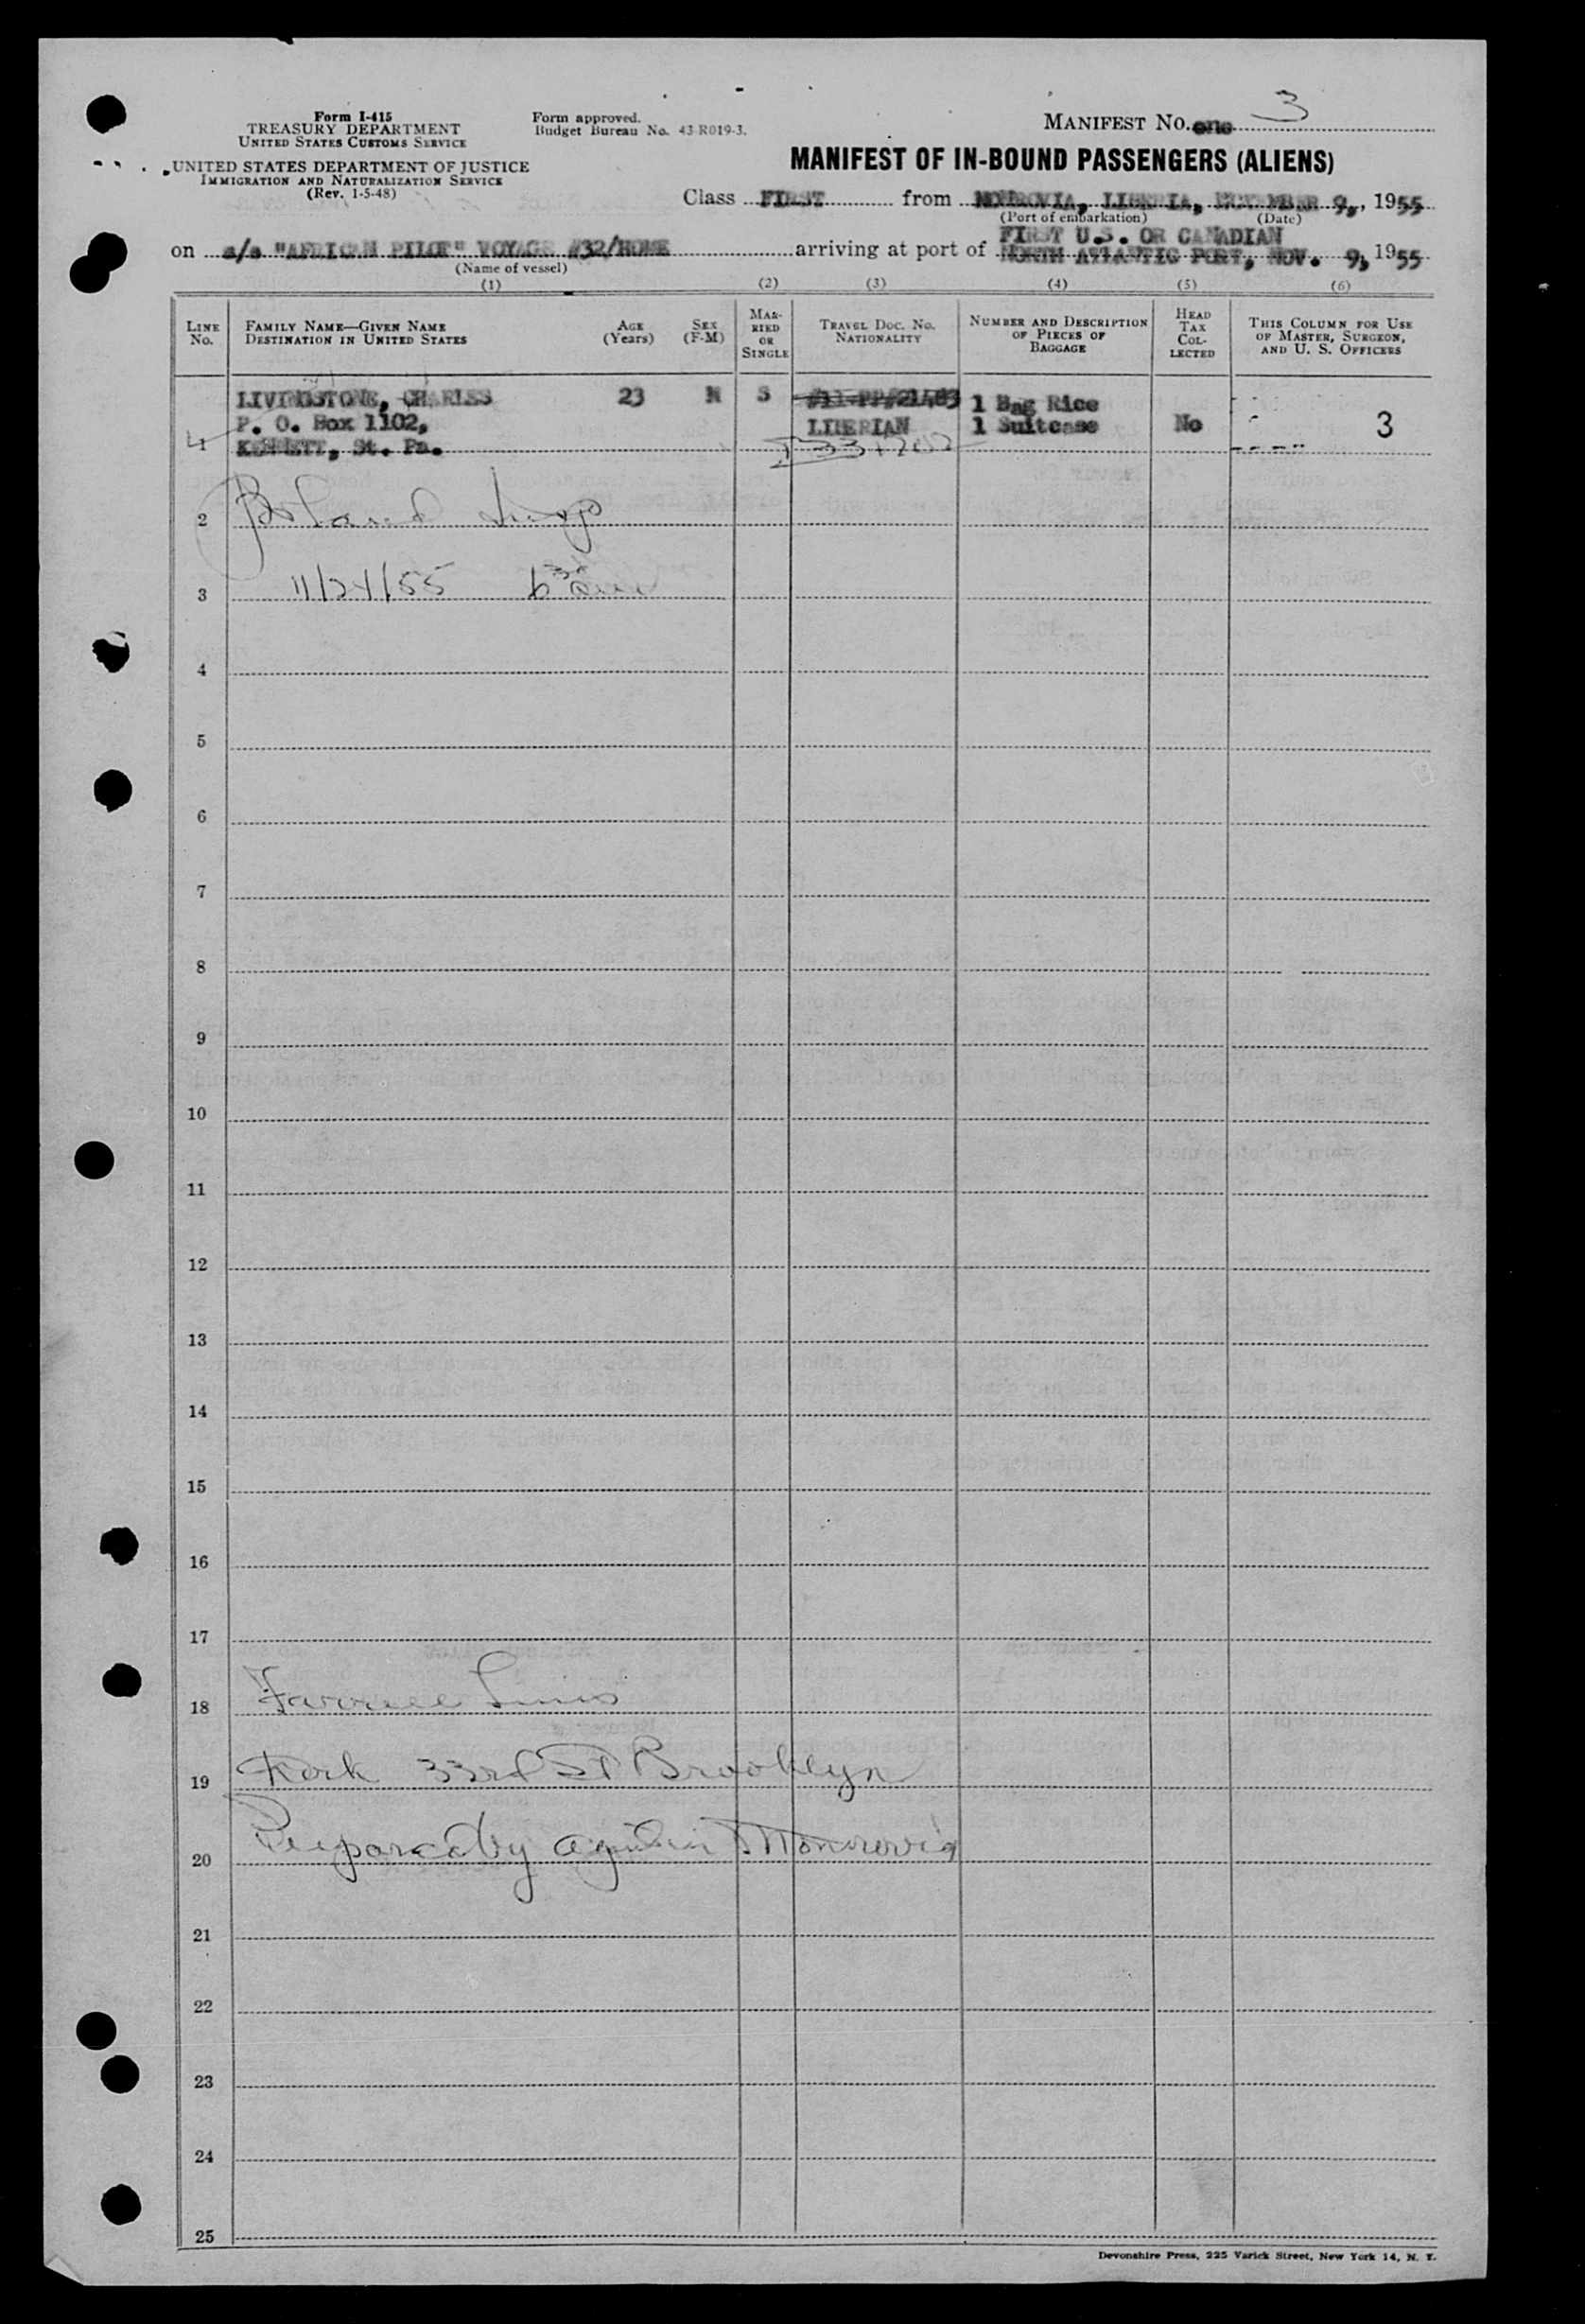 Form I-415
TREASURY DEPARTMENT
UNITED STATES CUSTOMS SERVICE
UNITED STATES DEPARTMENT OF JUSTICE
IMMIGRATION AND NATURALIZATION SERVICE
(Rev. 1-5-48)
Form approved.
Budget Bureau No. 43-R019-3.
MANIFEST No. one 3
MANIFEST OF IN-BOUND PASSENGERS (ALIENS)
Class FIRST from MONROVIA, LIBERIA, NOVEMBER 9, 1955
(Port of embarkation) (Date)
on s/s "AFRICAN PILOT" VOYAGE #32/HOME arriving at port of FIRST U.S. OR CANADIAN
NORTH ATLANTIC PORT, NOV. 9, 1955
(Name of vessel)
(1) (2) (3) (4) (5) (6)
LINE No.
FAMILY NAME—GIVEN NAME
DESTINATION IN UNITED STATES
AGE (Years)
SEX (F-M)
MARRIED OR SINGLE
TRAVEL DOC. NO. NATIONALITY
NUMBER AND DESCRIPTION OF PIECES OF BAGGAGE
HEAD TAX COLLECTED
THIS COLUMN FOR USE OF MASTER, SURGEON, AND U. S. OFFICERS
LIVINGSTONE, CHARLES 23 M S #11-PP#21483 1 Bag Rice
P. O. Box 1102, LIBERIAN 1 Suitcase No 3
1 KENNETT, St. Pa.
2
3 11/24/55
4
5
6
7
8
9
10
11
12
13
14
15
16
17
18 Farrell Lines
19 33rd St Brooklyn
20 Prepared by agents in Monrovia
21
22
23
24
25
Devonshire Press, 225 Varick Street, New York 14, N. Y.